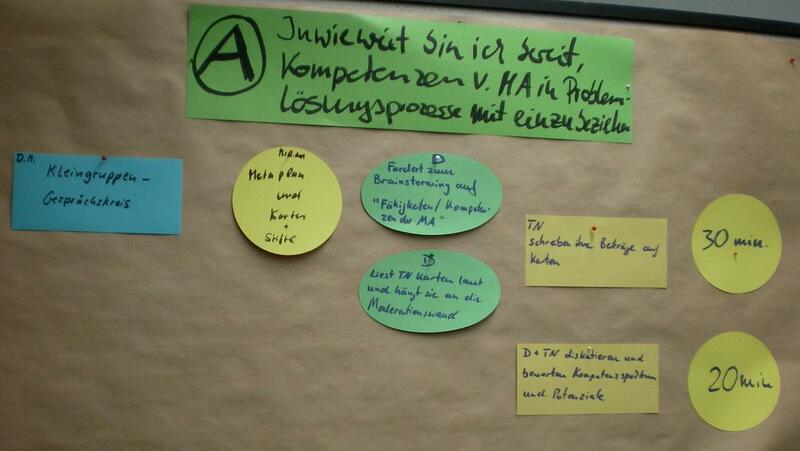 A
Inwieweit bin ich bereit,
Kompetenzen v. MA in Problem-
lösungsprozesse mit einzubeziehen
D.M.
Kleingruppen-
Gesprächskreis
Metaplan
und
Karten
+
Stifte
D
Fordert zum
Brainstorming auf
"Fähigkeiten/Kompeten-
zen der MA"
D
liest TN Karten laut
und hängt sie an die
Moderationswand
TN
schreiben ihre Beträge auf
Karten
30 min.
D + TN diskutieren und
bewerten Kompetenzspektrum
und Potenziale
20 min